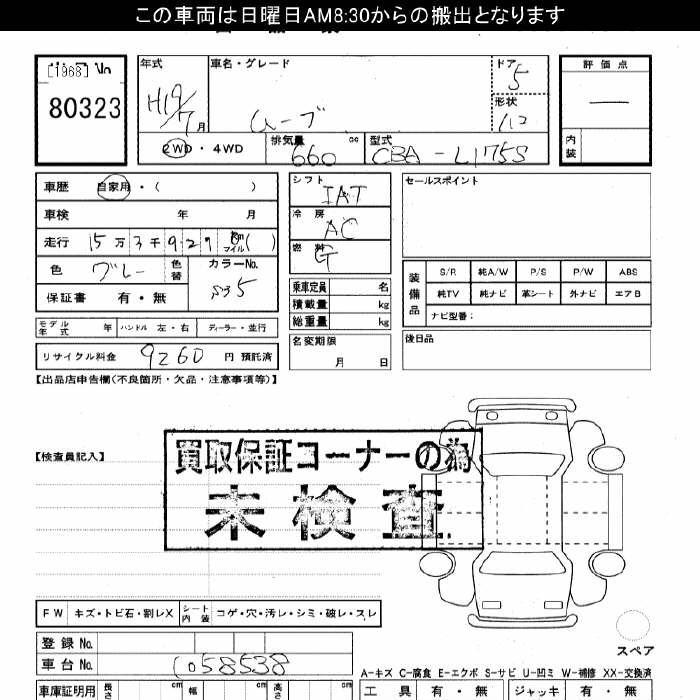 この車両は日曜日AM8:30からの搬出となります
[1968]
80323
年式
H19/7月
車名・グレード
ムーブ
ドア
5
形状
評価点
―
内装
2WD・4WD
排気量
660
cc
型式
CBA-L175S
車歴
自家用・( )
車検
年 月
走行
15万3千929 Km マイル( )
色
グレー
色替
カラーNo.
S35
保証書
有・無
シフト
IAT
冷房
AC
燃料
G
乗車定員 名
積載量 kg
総重量 kg
セールスポイント
装備品
S/R 純A/W P/S P/W ABS
純TV 純ナビ 革シート 外ナビ エアB
ナビ型番:
モデル年式 年 ハンドル 左・右 ディーラー・並行
リサイクル料金 9260 円 預託済
名変期限
月 日
後日品
【出品店申告欄(不良箇所・欠品・注意事項等)】
【検査員記入】
買取保証コーナーの為
未検査
FW キズ・トビ石・割レX シート内装 コゲ・穴・汚レ・シミ・破レ・スレ
スペア
登録No.
車台No. 058538
A-キズ C-腐食 E-エクボ S-サビ U-凹ミ W-補修 XX-交換済
車庫証明用 長さ cm 幅 cm 高さ cm
工具 有・無 ジャッキ 有・無